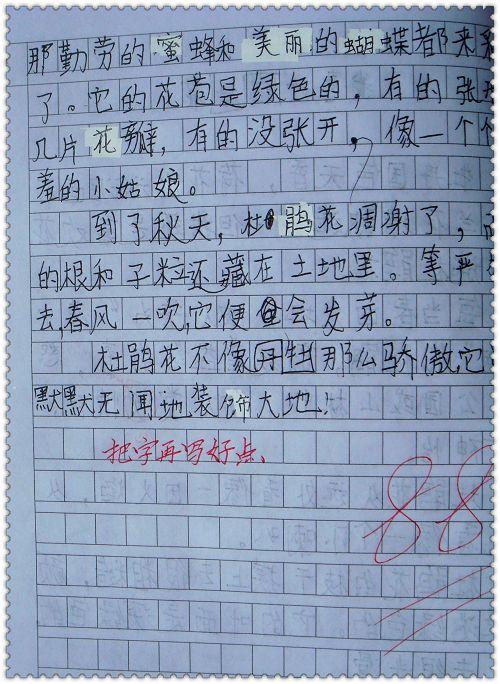 那勤劳的蜜蜂和美丽的蝴蝶都来采
了。它的花苞是绿色的，有的张
几片花瓣，有的没张开，像一个个
羞的小姑娘。
到了秋天，杜鹃花凋谢了，
的根和子粒还藏在土地里。等严
去，春风一吹，它便会发芽。
杜鹃花不像牡那么骄傲，它
默默无闻地装饰大地！
把字再写好点、
88